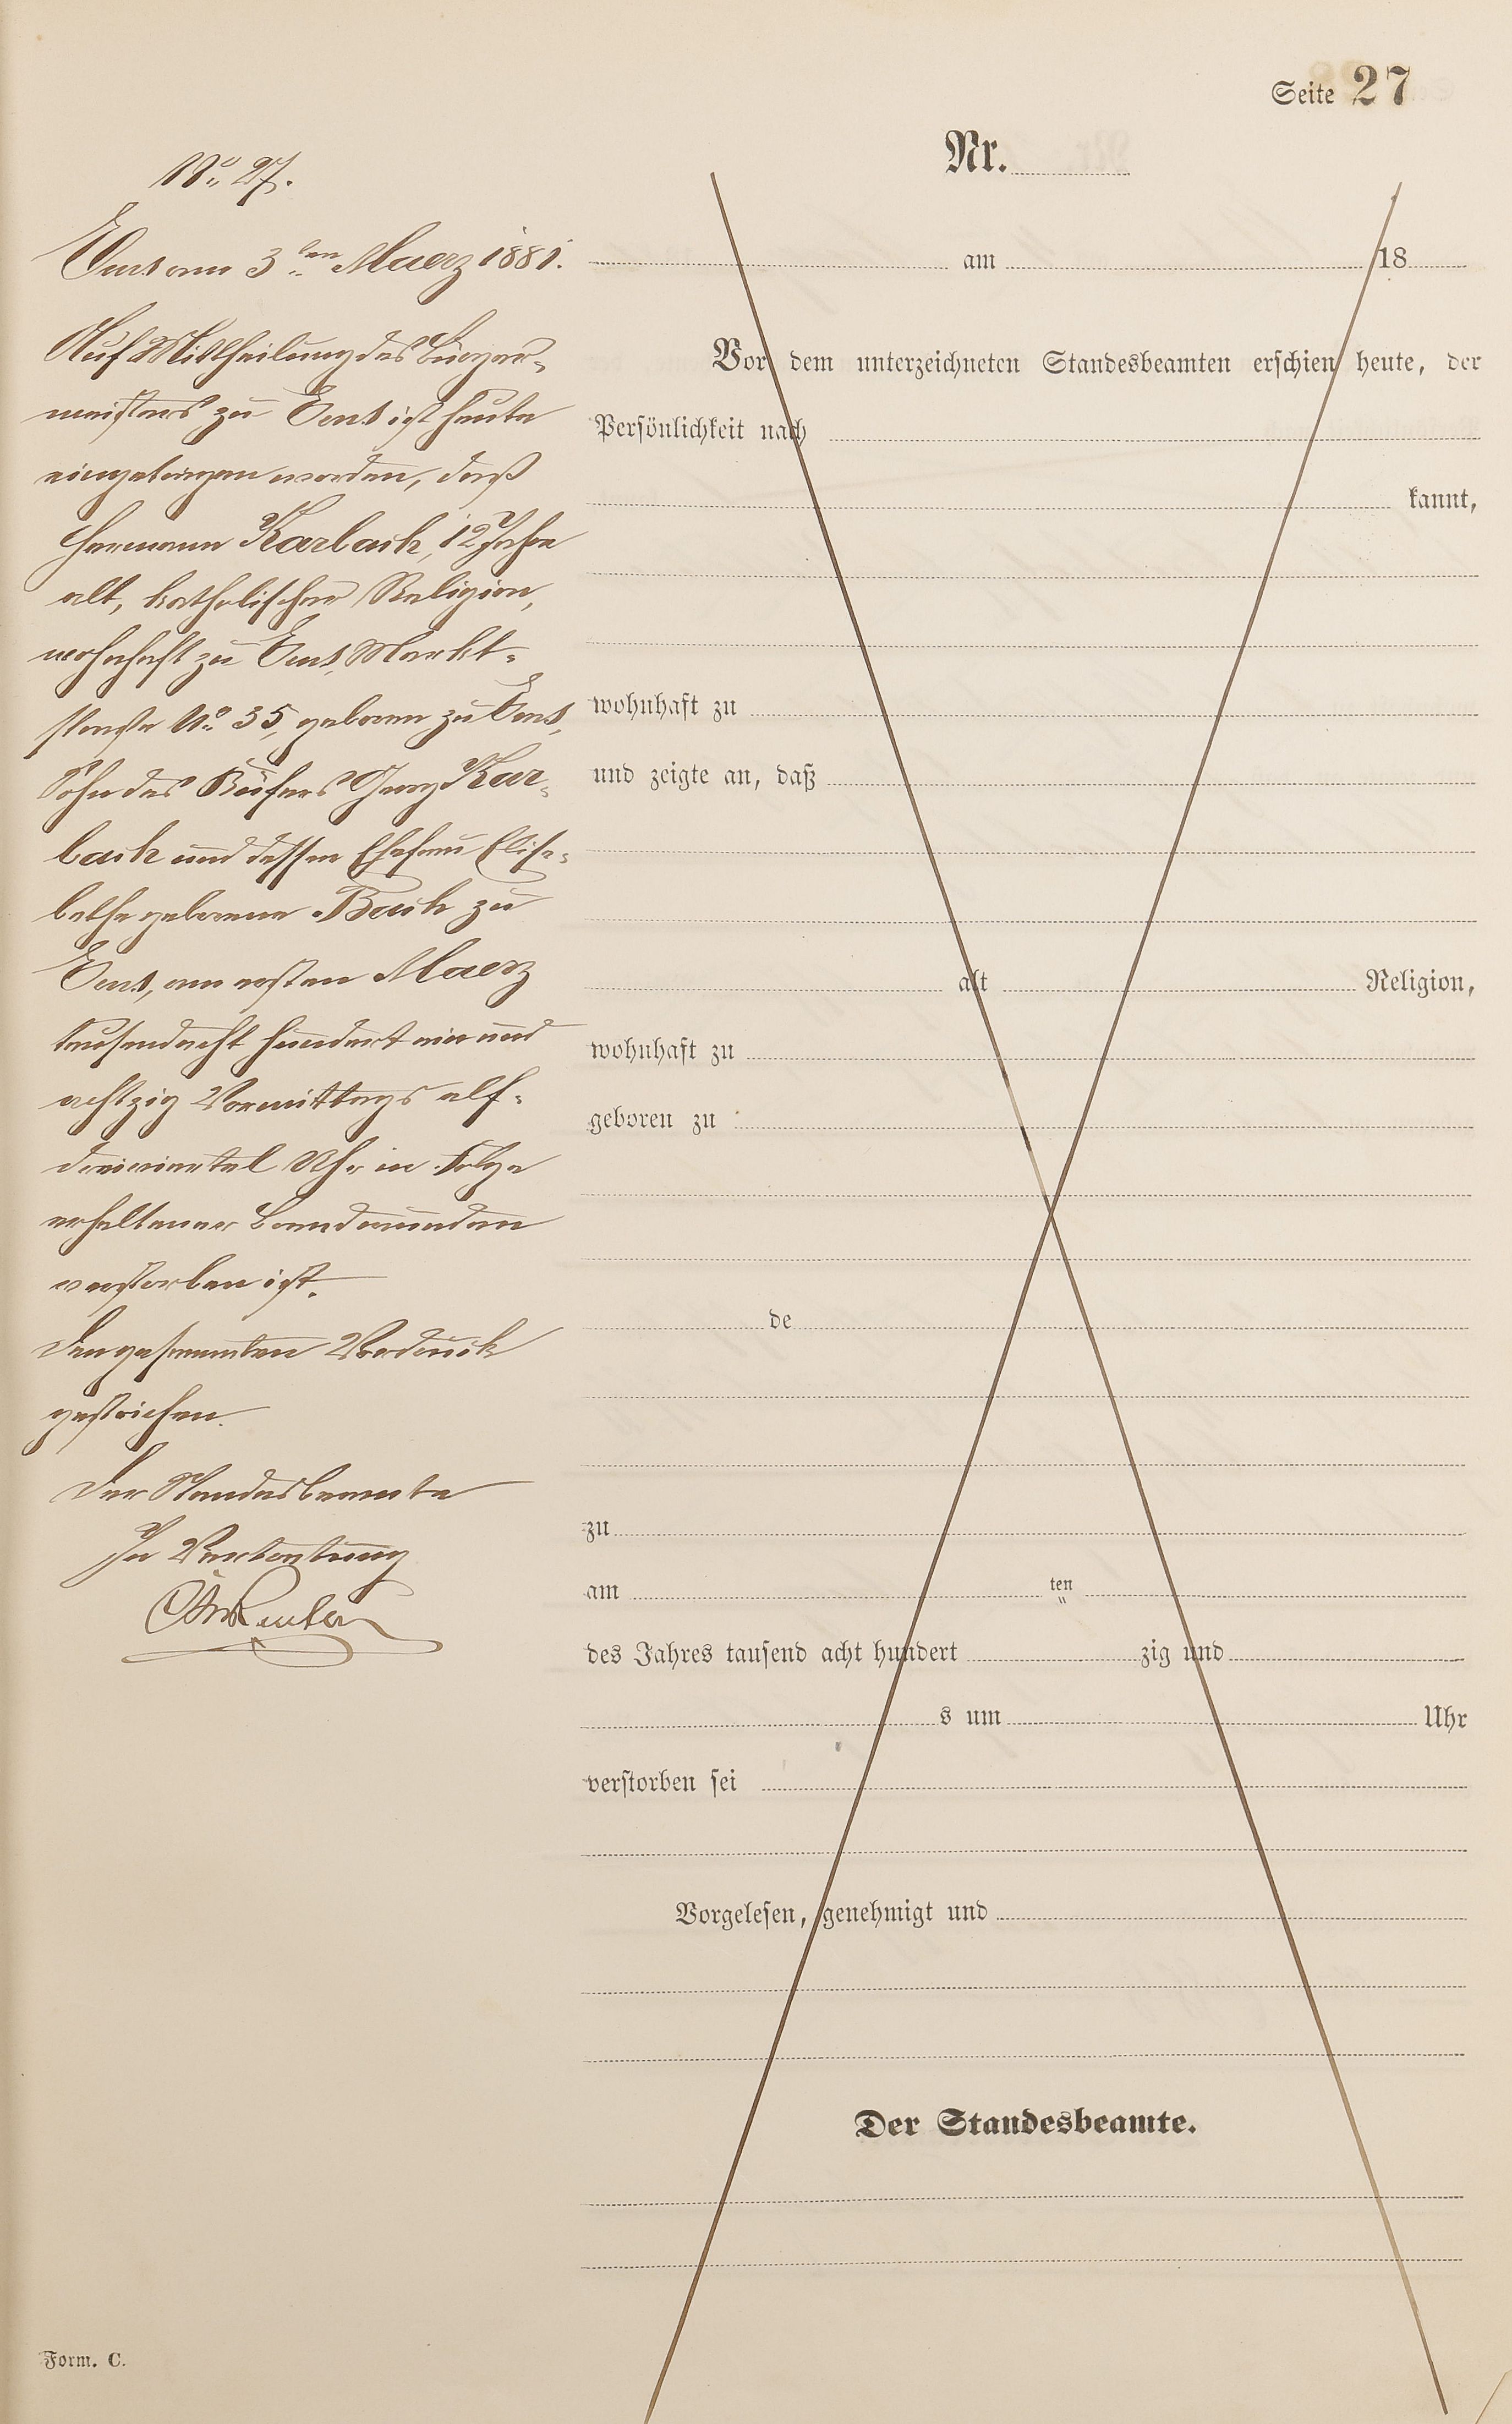 Seite 27
No. 27.
Ems am 3ten Maerz 1881.
Auf Mittheilung des Bürger-
meisters zu Ems ist heute
eingetragen worden, daß
Hermann Karbach, 12 Jahre
alt, katholischer Religion,
wohnhaft zu Ems, Markt-
straße No. 35, geboren zu Ems,
Sohn des Küfers Georg Kar-
bach und dessen Ehefrau Elisa-
betha geborene Bach zu
Ems, am ersten Maerz
tausendacht hundert ein und
achtzig Vormittags elf-
dreiviertel Uhr in Folge
erhaltener Brandwunden
verstorben ist.
Den gesammten Vordruck
gestrichen.
Der Standesbeamte
In Vertretung
Nr.
am 18
Vor dem unterzeichneten Standesbeamten erschien heute, der
Persönlichkeit nach
kannt,
wohnhaft zu
und zeigte an, daß
alt Religion,
wohnhaft zu
geboren zu
de
zu
am ten
des Jahres tausend acht hundert zig und
s um Uhr
verstorben sei
Vorgelesen, genehmigt und
Der Standesbeamte.
Form. C.